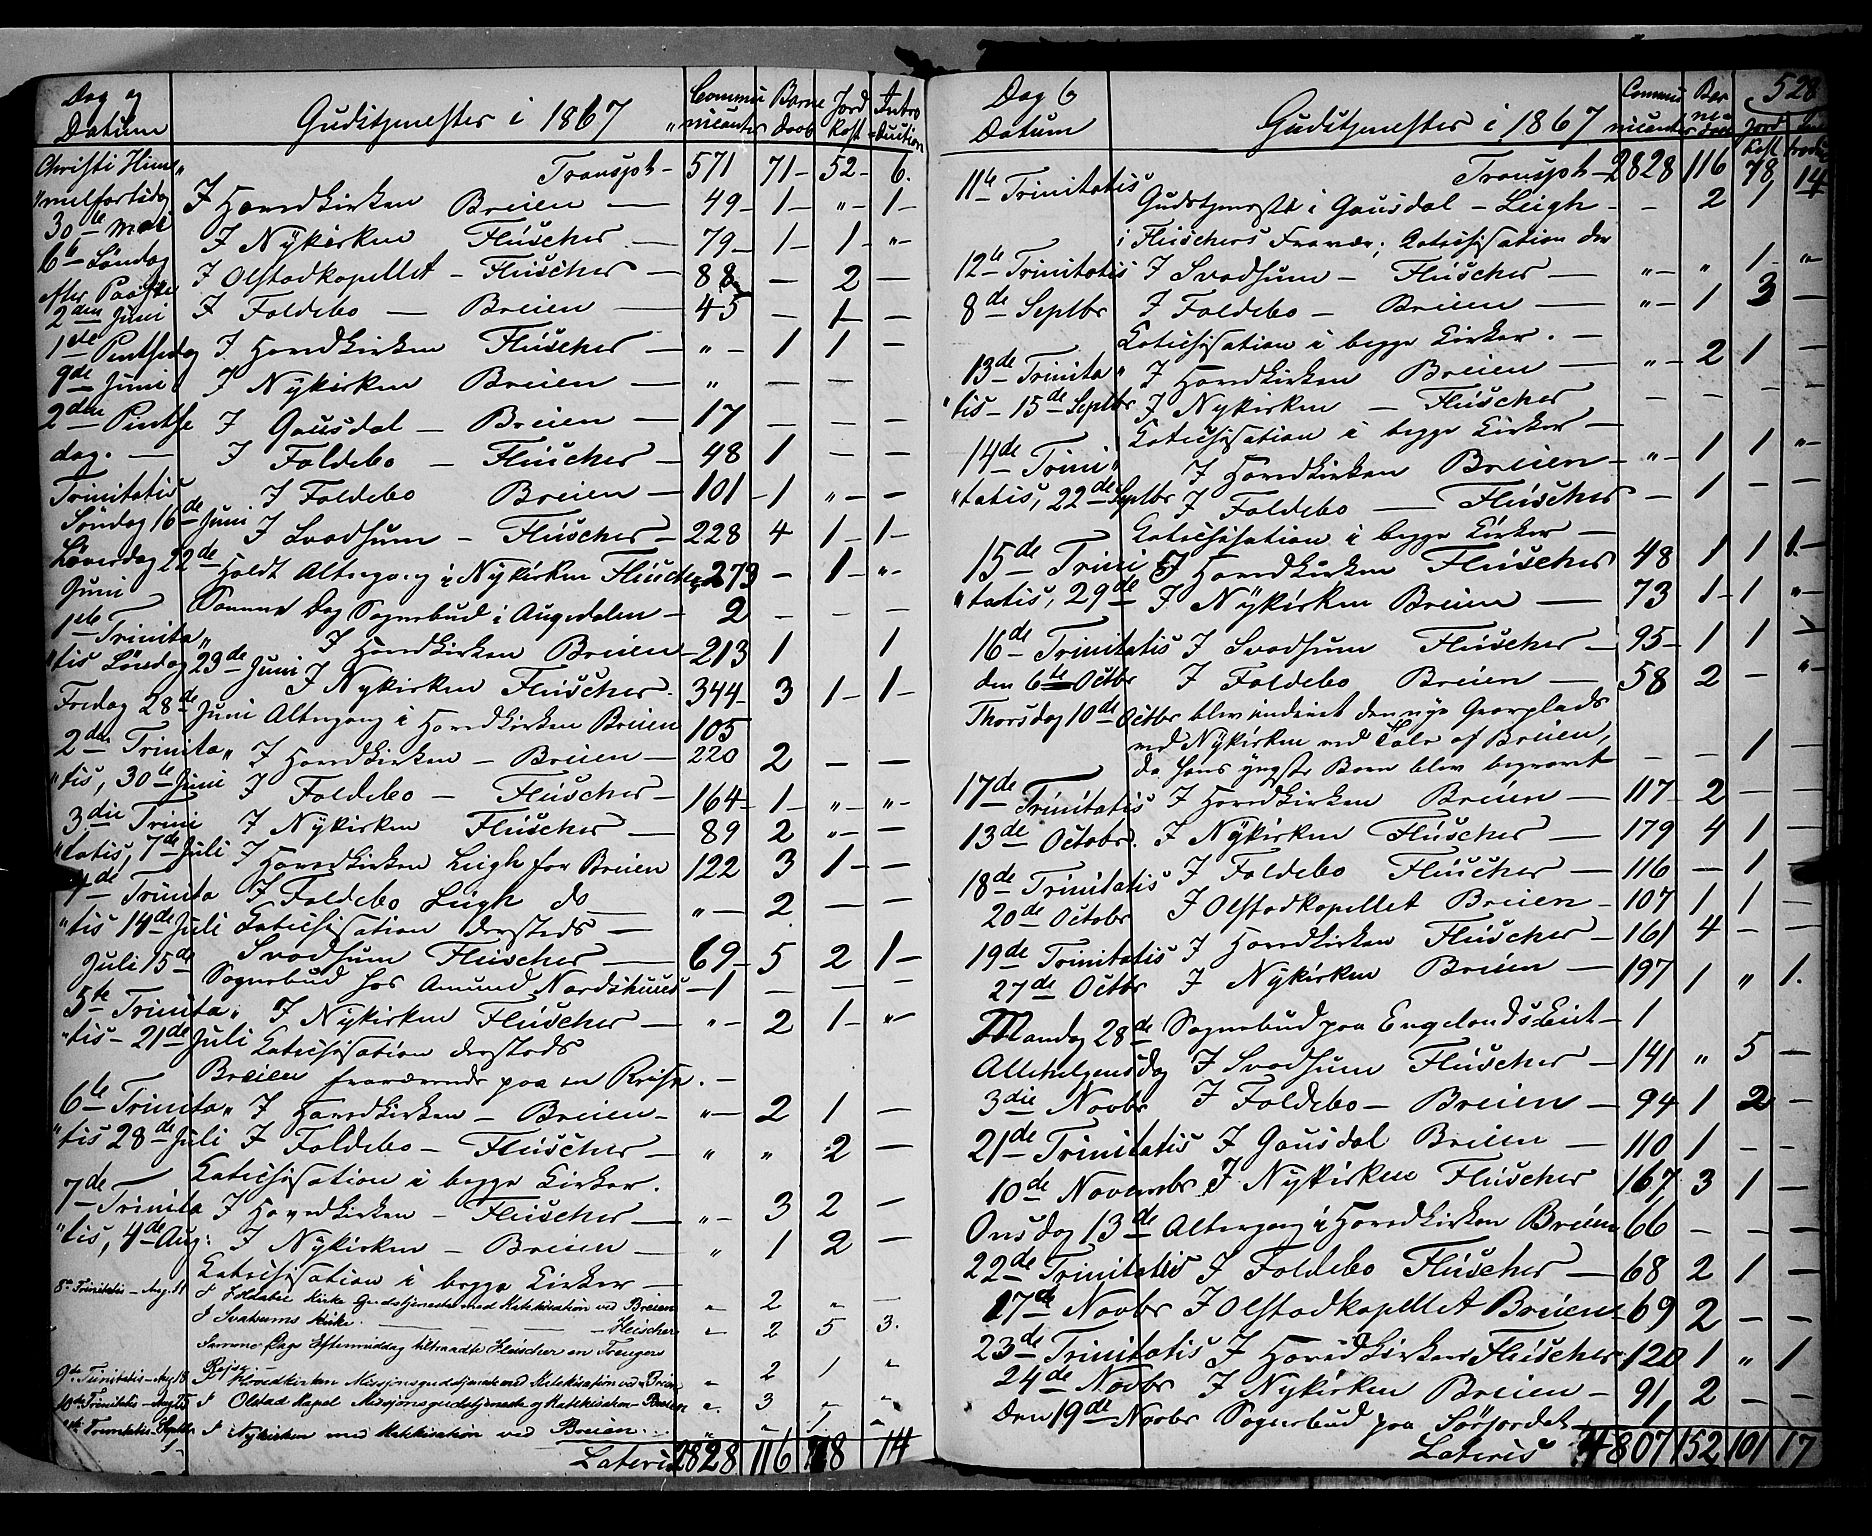 Dag og Datum | Gudstjenester i 1867 | Commu„nicanter | Barne daab | Jord kast„ | Intro duction
Christi Him„ Transpt — 571 71 — 52 — 6.
melfartsdag I Hovedkirken Breien — 49 — 1 — „ — 1 —
30te Mai I Nykirken Fleischer — 79 — 1 — 1 — „ —
6te Søndag I Olstadkapellet — Fleischer — 88 — 2 —
efter Paaske
2den Juni I Foldebo — Breien — 45 — 1 —
1ste Pintsedag I Hovedkirken Fleischer — „ — 1 1 —
9de Juni I Nykirken Breien — „ — —
2den Pintse I Gausdal — Breien — 17 — — —
dag. — I Foldebo — Fleischer — 48 1 — —
Trinitatis I Foldebo Breien — 101 — 1 „ — —
Søndag 16de Juni I Svadsum — Fleischer — 228 4 1 — 1 —
Løverdag 22de Holdt Altergang i Nykirken Fleischer 273 — 1 — „ —
Juni Samme Dag Sognebud i Augedalen — 2 — — —
1ste Trinita„ I Hovedkirken Breien — 213 1 1
„tis Søndag 23de Juni I Nykirken Fleischer — 344 — 3 1 — 1 —
Fredag 28de Juni Altergang i Hovedkirken Breien 105
2den Trinita„ I Hovedkirken — Breien — 220 2 — —
„tis, 30te Juni I Foldebo — Fleischer — 164 — 1 — „ — „ —
3die Trini I Nykirken Fleischer — 89 2 „ — —
„tatis, 7de Juli I Hovedkirken Leigh for Breien 122 3 1 — —
4de Trinita I Foldebo Leigh do — „ — 2 — —
„tis 14de Juli Catechisation dersteds —
Juli 15de Svadsum Fleischer — 69 — 5 2 1 —
Sognebud hos Amund Nordshuus — 1 — — —
5te Trinita„ I Nykirken Fleischer — „ — 2 1 — „ —
„tis — 21de Juli Catechisation dersteds
Breien fraværende paa en Reise. —
6te Trinita„ I Hovedkirken — Breien — „ — 2 1 —
„tis 28de Juli I Foldebo — Fleischer — „ „ 2 —
Catechisation i begge Kirker.
7de Trinita I Hovedkirken — Fleischer — „ — 3 2 —
„tis, 4de Aug: I Nykirken — Breien — „ 1 2 —
Catechisation i begge Kirker —
8de Trinitatis — Aug. 11 I Foldebu Kirke Gudstjeneste med Katekisation ved Breien „ 2 „ —
I Svatsums Kirke. — — — Fleischer „ 2 5 3.
Samme Dags Eftermiddag tiltraadte Fleischer en
Rejse.
9de Trinitatis — Aug 18 I Hovedkirken Missionsgudstjeneste med Katekisation ved Breien „ 2 1 „
10de Trinitatis — Aug 25 I Olstad Kapel Missionsgudstjeneste og Katekisation — Breien „ 3 „ „
Trinitatis Septbr 1 I Nykirken med Katekisation ved Breien . . „ „ 1 „
Lateris 2828 116 78 14
528
Dag & Datum | Gudstjenester i 1867 | Commu nicanter | Bar ne daab | Jord kast | Intro duct
Transpt — 2828 116 78 14
11te Trinitatis Gudstjeneste i Gausdal — Leigh — — 2 1
i Fleischers Fravær; Catechisation der
12te Trinitatis I Svadsum — Fleischer — „ — „ 1 — „
8de Septbr I Foldebo — Breien — „ — 1 3 —
Catechisation i begge Kirker. —
13de Trinita„ I Hovedkirken Breien — „ — 2 1 —
„tis — 15de Septbr I Nykirken — Fleischer — — — —
Catechisation i begge Kirker —
14de Trini„ I Hovedkirken Breien — „ — 1 1 „
„tatis, 22de Septbr I Foldebo — Fleischer — 1 — —
Catechisation i begge Kirker —
15de Trini I Hovedkirken Fleischer 48 1 1 1. —
„tatis, 29de I Nykirken Breien — 73 1 — 1 „ —
16de Trinitatis I Svadsum Fleischer — 95 — 1 1 —
den 6te Octbr I Foldebo Breien — 58 2 — „
Thorsdag 10de Octbr blev indviet den nye Gravplads
ved Nykirken ved Tale af Breien,
da hans yngste Barn blev begravet — — 1 —
17de Trinitatis I Hovedkirken Breien — 117 2 — —
13de Octobr. I Nykirken Fleischer — 179 4 1 —
18de Trinitatis I Foldebo Fleischer — 116 — 1 —
20de Octobr I Olstadkapellet Breien — 107 1 1 —
19de Trinitatis I Hovedkirken Fleischer — 161 4 — —
27de Octbr I Nykirken Breien — 197 1 „ 1.
Mandag 28de Sognebud paa Engelands Eiet — 1
Allehelgensdag I Svadsum Fleischer — 141 „ 5 —
3die Novbr I Foldebo — Breien — 94 1 2 —
21de Trinitatis I Gausdal Breien — 110 1 — —
10de Novembr I Nykirken Fleischer 167 3 1 —
Onsdag 13de Altergang i Hovedkirken Breien 66 — — —
22de Trinitatis I Foldebo Fleischer — 68 2 1 —
17de Novbr I Olstadkapellet Breien 69 2 — —
23de Trinitatis I Hovedkirken Fleischer 120 1 „ 1
24de Novbr I Nykirken Breien — 91 2 — —
Den 19de Novbr Sognebud paa 1
Lateris 4807 152 101 17